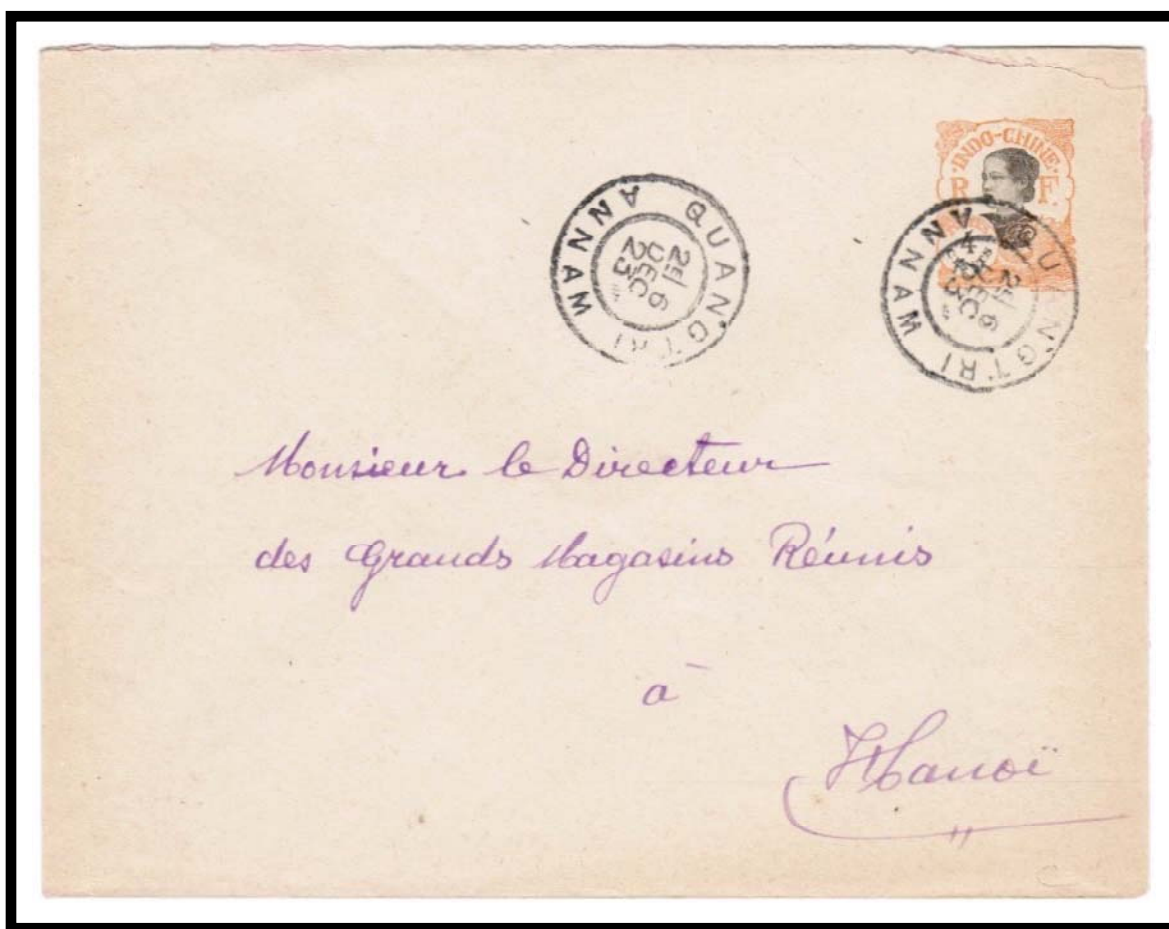 INDO-CHINE
R F
QUANG TRI
ANNAM
2E/6
DEC
23
QUANG TRI
ANNAM
2E/6
DEC
23
Monsieur le Directeur
des Grands Magasins Réunis
à
Hanoï